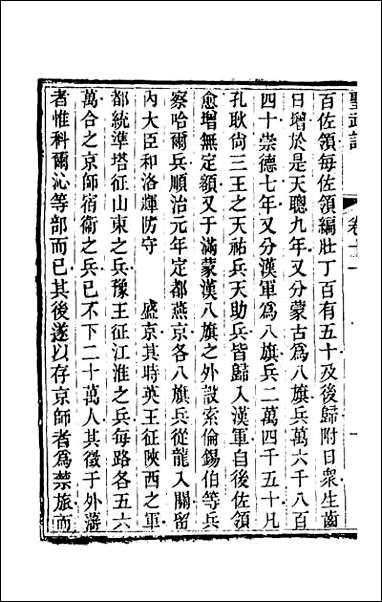 聖武記 卷十一
百佐領每佐領編壯丁百有五十及後歸附日衆生齒
日增於是天聰九年又分蒙古爲八旗兵萬六千八百
四十崇德七年又分漢軍爲八旗兵二萬四千五十凡
孔耿尙三王之天祐兵天助兵皆歸入漢軍自後佐領
愈增無定額又于滿蒙漢八旗之外設索倫錫伯等兵
察哈爾兵順治元年定都燕京各八旗兵從龍入關留
內大臣和洛輝防守 盛京其時英王征陝西之軍
都統準塔征山東之兵豫王征江淮之兵每路各五六
萬合之京師宿衛之兵已不下二十萬人其徵于外藩
者惟科爾沁等部而已其後遂以存京師者爲禁旅而